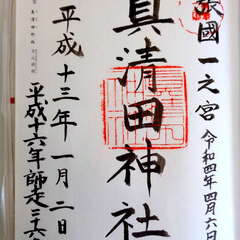 張國一之宮
令和四年四月六日
真清田神社
平成十三年一月二日
平成十六年師走二十六